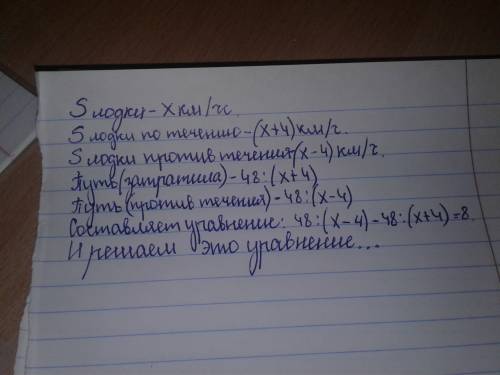 S лодки - x км/ч.
S лодки по течению - (x+4) км/ч.
S лодки против течения - (x-4) км/ч.
Путь (затратила) - 48:(x+4)
Путь (против течения) - 48:(x-4)
Составляет уравнение: 48:(x-4)-48:(x+4)=8.
И решаем это уравнение...